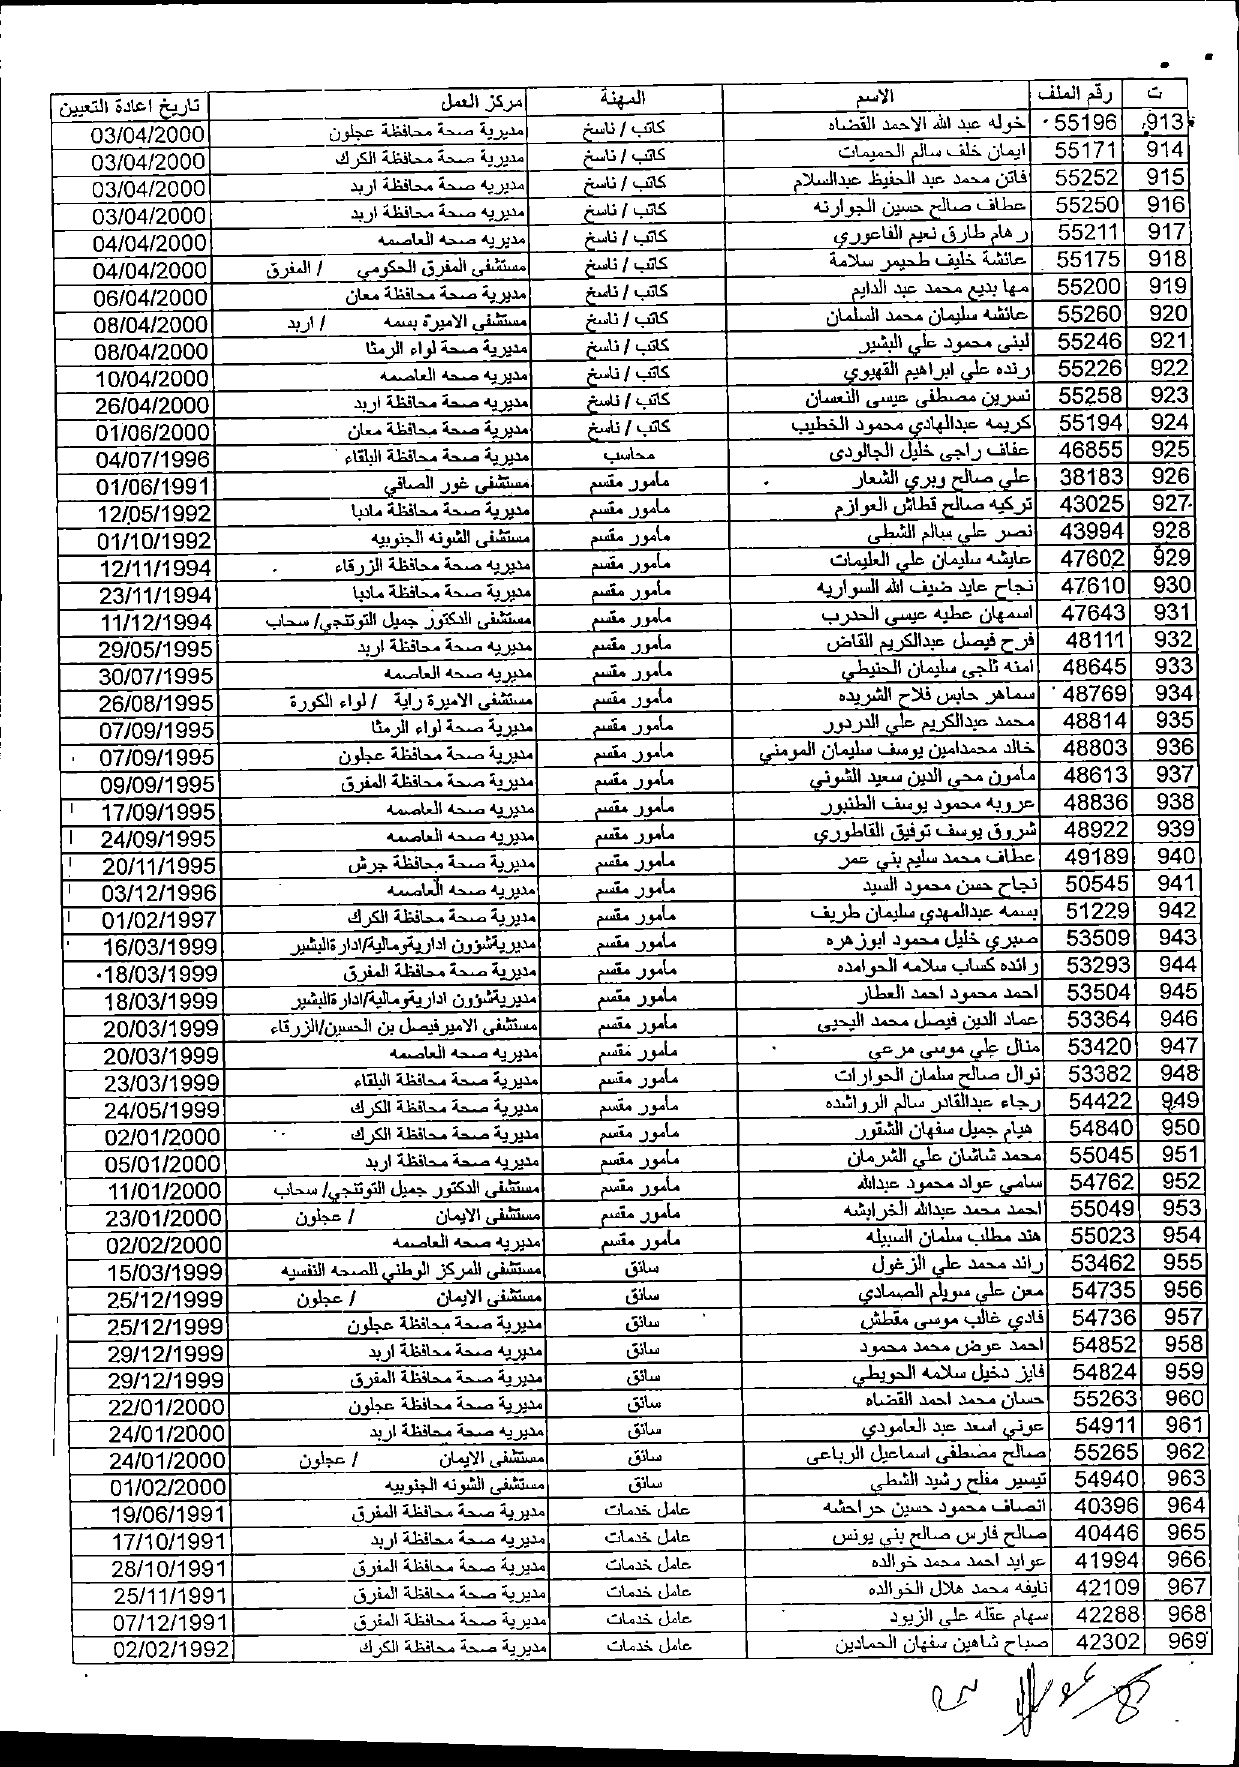 ت رقم الملف الاسم المهنة مركز العمل تاريخ اعادة التعيين
913 55196 خوله عبد الله الاحمد القضاه كاتب / ناسخ مديرية صحة محافظة عجلون 03/04/2000
914 55171 ايمان خلف سالم الحميمات كاتب / ناسخ مديرية صحة محافظة الكرك 03/04/2000
915 55252 فاتن محمد عبد الحفيظ عبدالسلام كاتب / ناسخ مديريه صحة محافظة اربد 03/04/2000
916 55250 عطاف صالح حسين الجوارنه كاتب / ناسخ مديريه صحة محافظة اربد 03/04/2000
917 55211 رهام طارق نعيم الفاعوري كاتب / ناسخ مديريه صحه العاصمه 04/04/2000
918 55175 عائشة خليف طحيمر سلامة كاتب / ناسخ مستشفى المفرق الحكومي / المفرق 04/04/2000
919 55200 مها بديع محمد عبد الدايم كاتب / ناسخ مديرية صحة محافظة معان 06/04/2000
920 55260 عائشه سليمان محمد السلمان كاتب / ناسخ مستشفى الاميرة بسمه / اربد 08/04/2000
921 55246 لبنى محمود علي البشير كاتب / ناسخ مديرية صحة لواء الرمثا 08/04/2000
922 55226 رنده علي ابراهيم القهيوي كاتب / ناسخ مديريه صحه العاصمه 10/04/2000
923 55258 نسرين مصطفى عيسى النعسان كاتب / ناسخ مديريه صحة محافظة اربد 26/04/2000
924 55194 كريمه عبدالهادي محمود الخطيب كاتب / ناسخ مديرية صحة محافظة معان 01/06/2000
925 46855 عفاف راجي خليل الجالودى محاسب مديرية صحة محافظة البلقاء 04/07/1996
926 38183 علي صالح وبري الشعار مأمور مقسم مستشفى غور الصافي 01/06/1991
927 43025 تركيه صالح قطاش العوازم مأمور مقسم مديرية صحة محافظة مادبا 12/05/1992
928 43994 نصر علي سالم الشطي مأمور مقسم مستشفى الشونه الجنوبيه 01/10/1992
929 47602 عايشه سليمان علي العليمات مأمور مقسم مديرية صحة محافظة الزرقاء 12/11/1994
930 47610 نجاح عايد ضيف الله السواريه مأمور مقسم مديرية صحة محافظة مادبا 23/11/1994
931 47643 اسمهان عطيه عيسى الحدرب مأمور مقسم مستشفى الدكتور جميل التوتنجي/ سحاب 11/12/1994
932 48111 فرح فيصل عبدالكريم القاض مأمور مقسم مديريه صحة محافظة اربد 29/05/1995
933 48645 امنه ثلجى سليمان الحنيطي مأمور مقسم مديريه صحه العاصمه 30/07/1995
934 48769 سماهر حابس فلاح الشريده مأمور مقسم مستشفى الاميرة راية / لواء الكورة 26/08/1995
935 48814 محمد عبدالكريم علي الدردور مأمور مقسم مديرية صحة لواء الرمثا 07/09/1995
936 48803 خالد محمدامين يوسف سليمان المومني مأمور مقسم مديرية صحة محافظة عجلون 07/09/1995
937 48613 مأمون محي الدين سعيد الشوني مأمور مقسم مديرية صحة محافظة المفرق 09/09/1995
938 48836 عروبه محمود يوسف الطنبور مأمور مقسم مديريه صحه العاصمه 17/09/1995
939 48922 شروق يوسف توفيق القاطوري مأمور مقسم مديريه صحه العاصمه 24/09/1995
940 49189 عطاف محمد سليم بني عمر مأمور مقسم مديرية صحة محافظة جرش 20/11/1995
941 50545 نجاح حسن محمود السيد مأمور مقسم مديريه صحه العاصمه 03/12/1996
942 51229 بسمه عبدالمهدي سليمان طريف مأمور مقسم مديرية صحة محافظة الكرك 01/02/1997
943 53509 صبري خليل محمود ابوزهره مأمور مقسم مديريةشؤون اداريةومالية/ادارةالبشير 16/03/1999
944 53293 رائده كساب سلامه الحوامده مأمور مقسم مديرية صحة محافظة المفرق 18/03/1999
945 53504 احمد محمود احمد العطار مأمور مقسم مديريةشؤون اداريةومالية/ادارةالبشير 18/03/1999
946 53364 عماد الدين فيصل محمد اليحيى مأمور مقسم مستشفى الاميرفيصل بن الحسين/الزرقاء 20/03/1999
947 53420 منال علي موسى مرعي مأمور مقسم مديريه صحه العاصمه 20/03/1999
948 53382 نوال صالح سلمان الحوارات مأمور مقسم مديرية صحة محافظة البلقاء 23/03/1999
949 54422 رجاء عبدالقادر سالم الرواشده مأمور مقسم مديرية صحة محافظة الكرك 24/05/1999
950 54840 هيام جميل سفهان الشقور مأمور مقسم مديرية صحة محافظة الكرك 02/01/2000
951 55045 محمد شاشان علي الشرمان مأمور مقسم مديريه صحة محافظة اربد 05/01/2000
952 54762 سامي عواد محمود عبدالله مأمور مقسم مستشفى الدكتور جميل التوتنجي/ سحاب 11/01/2000
953 55049 احمد محمد عبدالله الخرابشه مأمور مقسم مستشفى الايمان / عجلون 23/01/2000
954 55023 هند مطلب سلمان السبيله مأمور مقسم مديريه صحه العاصمه 02/02/2000
955 53462 رائد محمد علي الزغول سائق مستشفى المركز الوطني للصحه النفسيه 15/03/1999
956 54735 معن علي سويلم الصمادي سائق مستشفى الايمان / عجلون 25/12/1999
957 54736 فادي غالب موسى مقطش سائق مديرية صحة محافظة عجلون 25/12/1999
958 54852 احمد عوض محمد محمود سائق مديريه صحة محافظة اربد 29/12/1999
959 54824 فايز دخيل سلامه الحويطي سائق مديرية صحة محافظة المفرق 29/12/1999
960 55263 حسان محمد احمد القضاه سائق مديرية صحة محافظة عجلون 22/01/2000
961 54911 عوني اسعد عبد العامودي سائق مديريه صحة محافظة اربد 24/01/2000
962 55265 صالح مصطفى اسماعيل الرباعى سائق مستشفى الايمان / عجلون 24/01/2000
963 54940 تيسير مفلح رشيد الشطي سائق مستشفى الشونه الجنوبيه 01/02/2000
964 40396 انصاف محمود حسين حراحشه عامل خدمات مديرية صحة محافظة المفرق 19/06/1991
965 40446 صالح فارس صالح بني يونس عامل خدمات مديريه صحة محافظة اربد 17/10/1991
966 41994 عوايد احمد محمد خوالده عامل خدمات مديرية صحة محافظة المفرق 28/10/1991
967 42109 نايفه محمد هلال الخوالده عامل خدمات مديرية صحة محافظة المفرق 25/11/1991
968 42288 سهام عقله علي الزيود عامل خدمات مديرية صحة محافظة المفرق 07/12/1991
969 42302 صباح شاهين سفهان الحمادين عامل خدمات مديرية صحة محافظة الكرك 02/02/1992